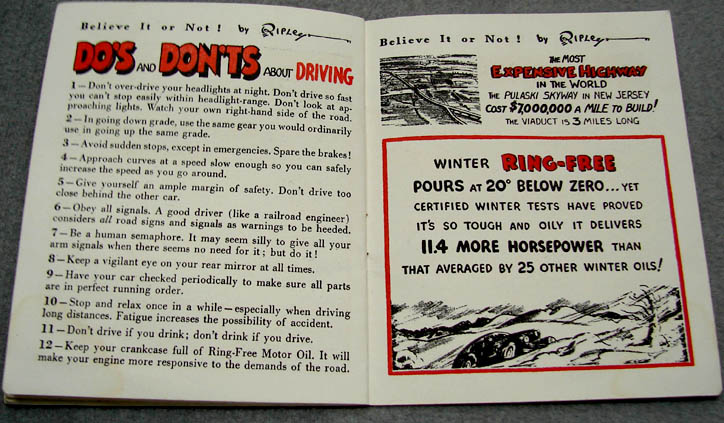 Believe It or Not! by Ripley
DO'S AND DON'TS ABOUT DRIVING
1—Don't over-drive your headlights at night. Don't drive so fast
you can't stop easily within headlight-range. Don't look at ap-
proaching lights. Watch your own right-hand side of the road.
2—In going down grade, use the same gear you would ordinarily
use in going up the same grade.
3—Avoid sudden stops, except in emergencies. Spare the brakes!
4—Approach curves at a speed slow enough so you can safely
increase the speed as you go around.
5—Give yourself an ample margin of safety. Don't drive too
close behind the other car.
6—Obey all signals. A good driver (like a railroad engineer)
considers all road signs and signals as warnings to be heeded.
7—Be a human semaphore. It may seem silly to give all your
arm signals when there seems no need for it; but do it!
8—Keep a vigilant eye on your rear mirror at all times.
9—Have your car checked periodically to make sure all parts
are in perfect running order.
10—Stop and relax once in a while—especially when driving
long distances. Fatigue increases the possibility of accident.
11—Don't drive if you drink; don't drink if you drive.
12—Keep your crankcase full of Ring-Free Motor Oil. It will
make your engine more responsive to the demands of the road.
Believe It or Not! by Ripley
THE MOST
EXPENSIVE HIGHWAY
IN THE WORLD
THE PULASKI SKYWAY IN NEW JERSEY
COST $7,000,000 A MILE TO BUILD!
THE VIADUCT IS 3 MILES LONG
WINTER RING-FREE
POURS AT 20° BELOW ZERO... YET
CERTIFIED WINTER TESTS HAVE PROVED
IT'S SO TOUGH AND OILY IT DELIVERS
11.4 MORE HORSEPOWER THAN
THAT AVERAGED BY 25 OTHER WINTER OILS!